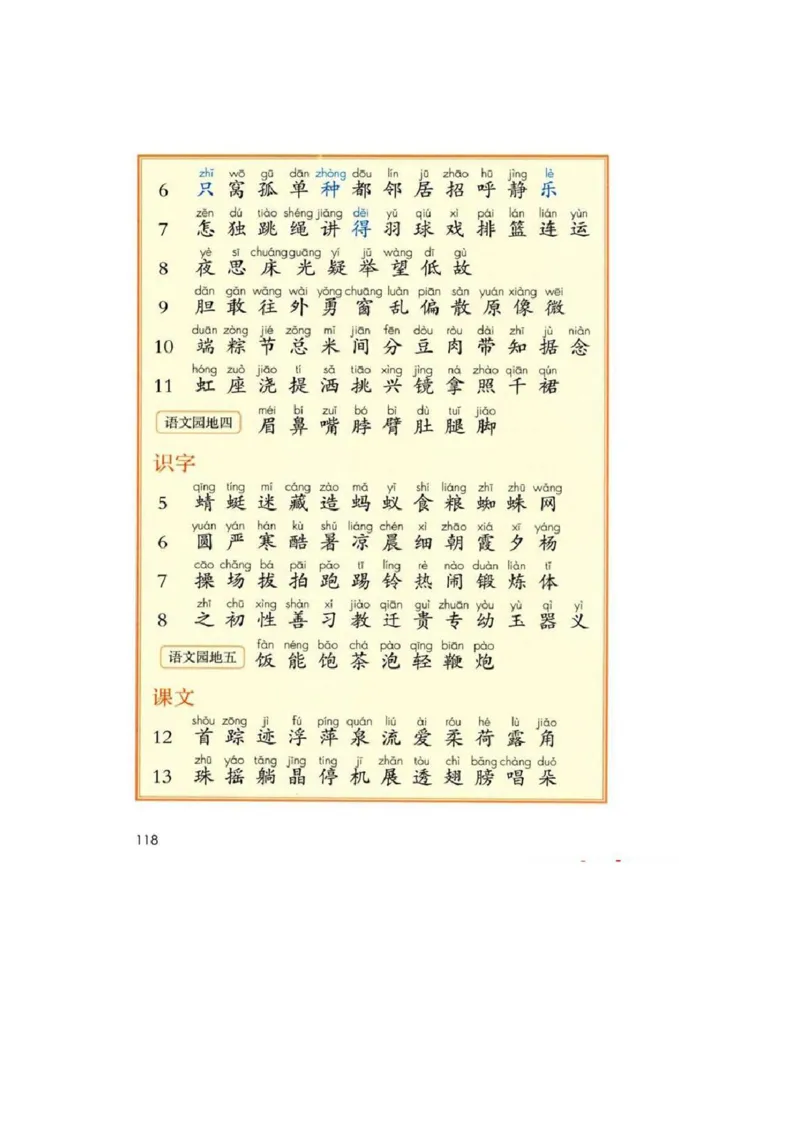 zhī wō gū dān zhòng dōu lín jū zhāo hū jìng lè
6 只 窝 孤 单 种 都 邻 居 招 呼 静 乐
zěn dú tiào shéng jiǎng děi yǔ qiú xì pái lán lián yùn
7 怎 独 跳 绳 讲 得 羽 球 戏 排 篮 连 运
yè sī chuáng guāng yí jǔ wàng dī gù
8 夜 思 床 光 疑 举 望 低 故
dǎn gǎn wǎng wài yǒng chuāng luàn piān sàn yuán xiàng wēi
9 胆 敢 往 外 勇 窗 乱 偏 散 原 像 微
duān zòng jié zǒng mǐ jiān fēn dòu ròu dài zhī jù niàn
10 端 粽 节 总 米 间 分 豆 肉 带 知 据 念
hóng zuò jiāo tí sǎ tiāo xìng jìng ná zhào qiān qún
11 虹 座 浇 提 洒 挑 兴 镜 拿 照 千 裙
méi bí zuǐ bó bì dù tuǐ jiǎo
语文园地四 眉 鼻 嘴 脖 臂 肚 腿 脚
识字
qīng tíng mí cáng zào mǎ yǐ shí liáng zhī zhū wǎng
5 蜻 蜓 迷 藏 造 蚂 蚁 食 粮 蜘 蛛 网
yuán yán hán kù shǔ liáng chén xì zhāo xiá xī yáng
6 圆 严 寒 酷 暑 凉 晨 细 朝 霞 夕 杨
cāo chǎng bá pāi pǎo tī líng rè nào duàn liàn tǐ
7 操 场 拔 拍 跑 踢 铃 热 闹 锻 炼 体
zhī chū xìng shàn xí jiào qiān guì zhuān yòu yù qì yì
8 之 初 性 善 习 教 迁 贵 专 幼 玉 器 义
fàn néng bǎo chá pào qīng biān pào
语文园地五 饭 能 饱 茶 泡 轻 鞭 炮
课文
shǒu zōng jì fú píng quán liú ài róu hé lù jiǎo
12 首 踪 迹 浮 萍 泉 流 爱 柔 荷 露 角
zhū yáo tǎng jīng tíng jī zhǎn tòu chì bǎng chàng duǒ
13 珠 摇 躺 晶 停 机 展 透 翅 膀 唱 朵
118